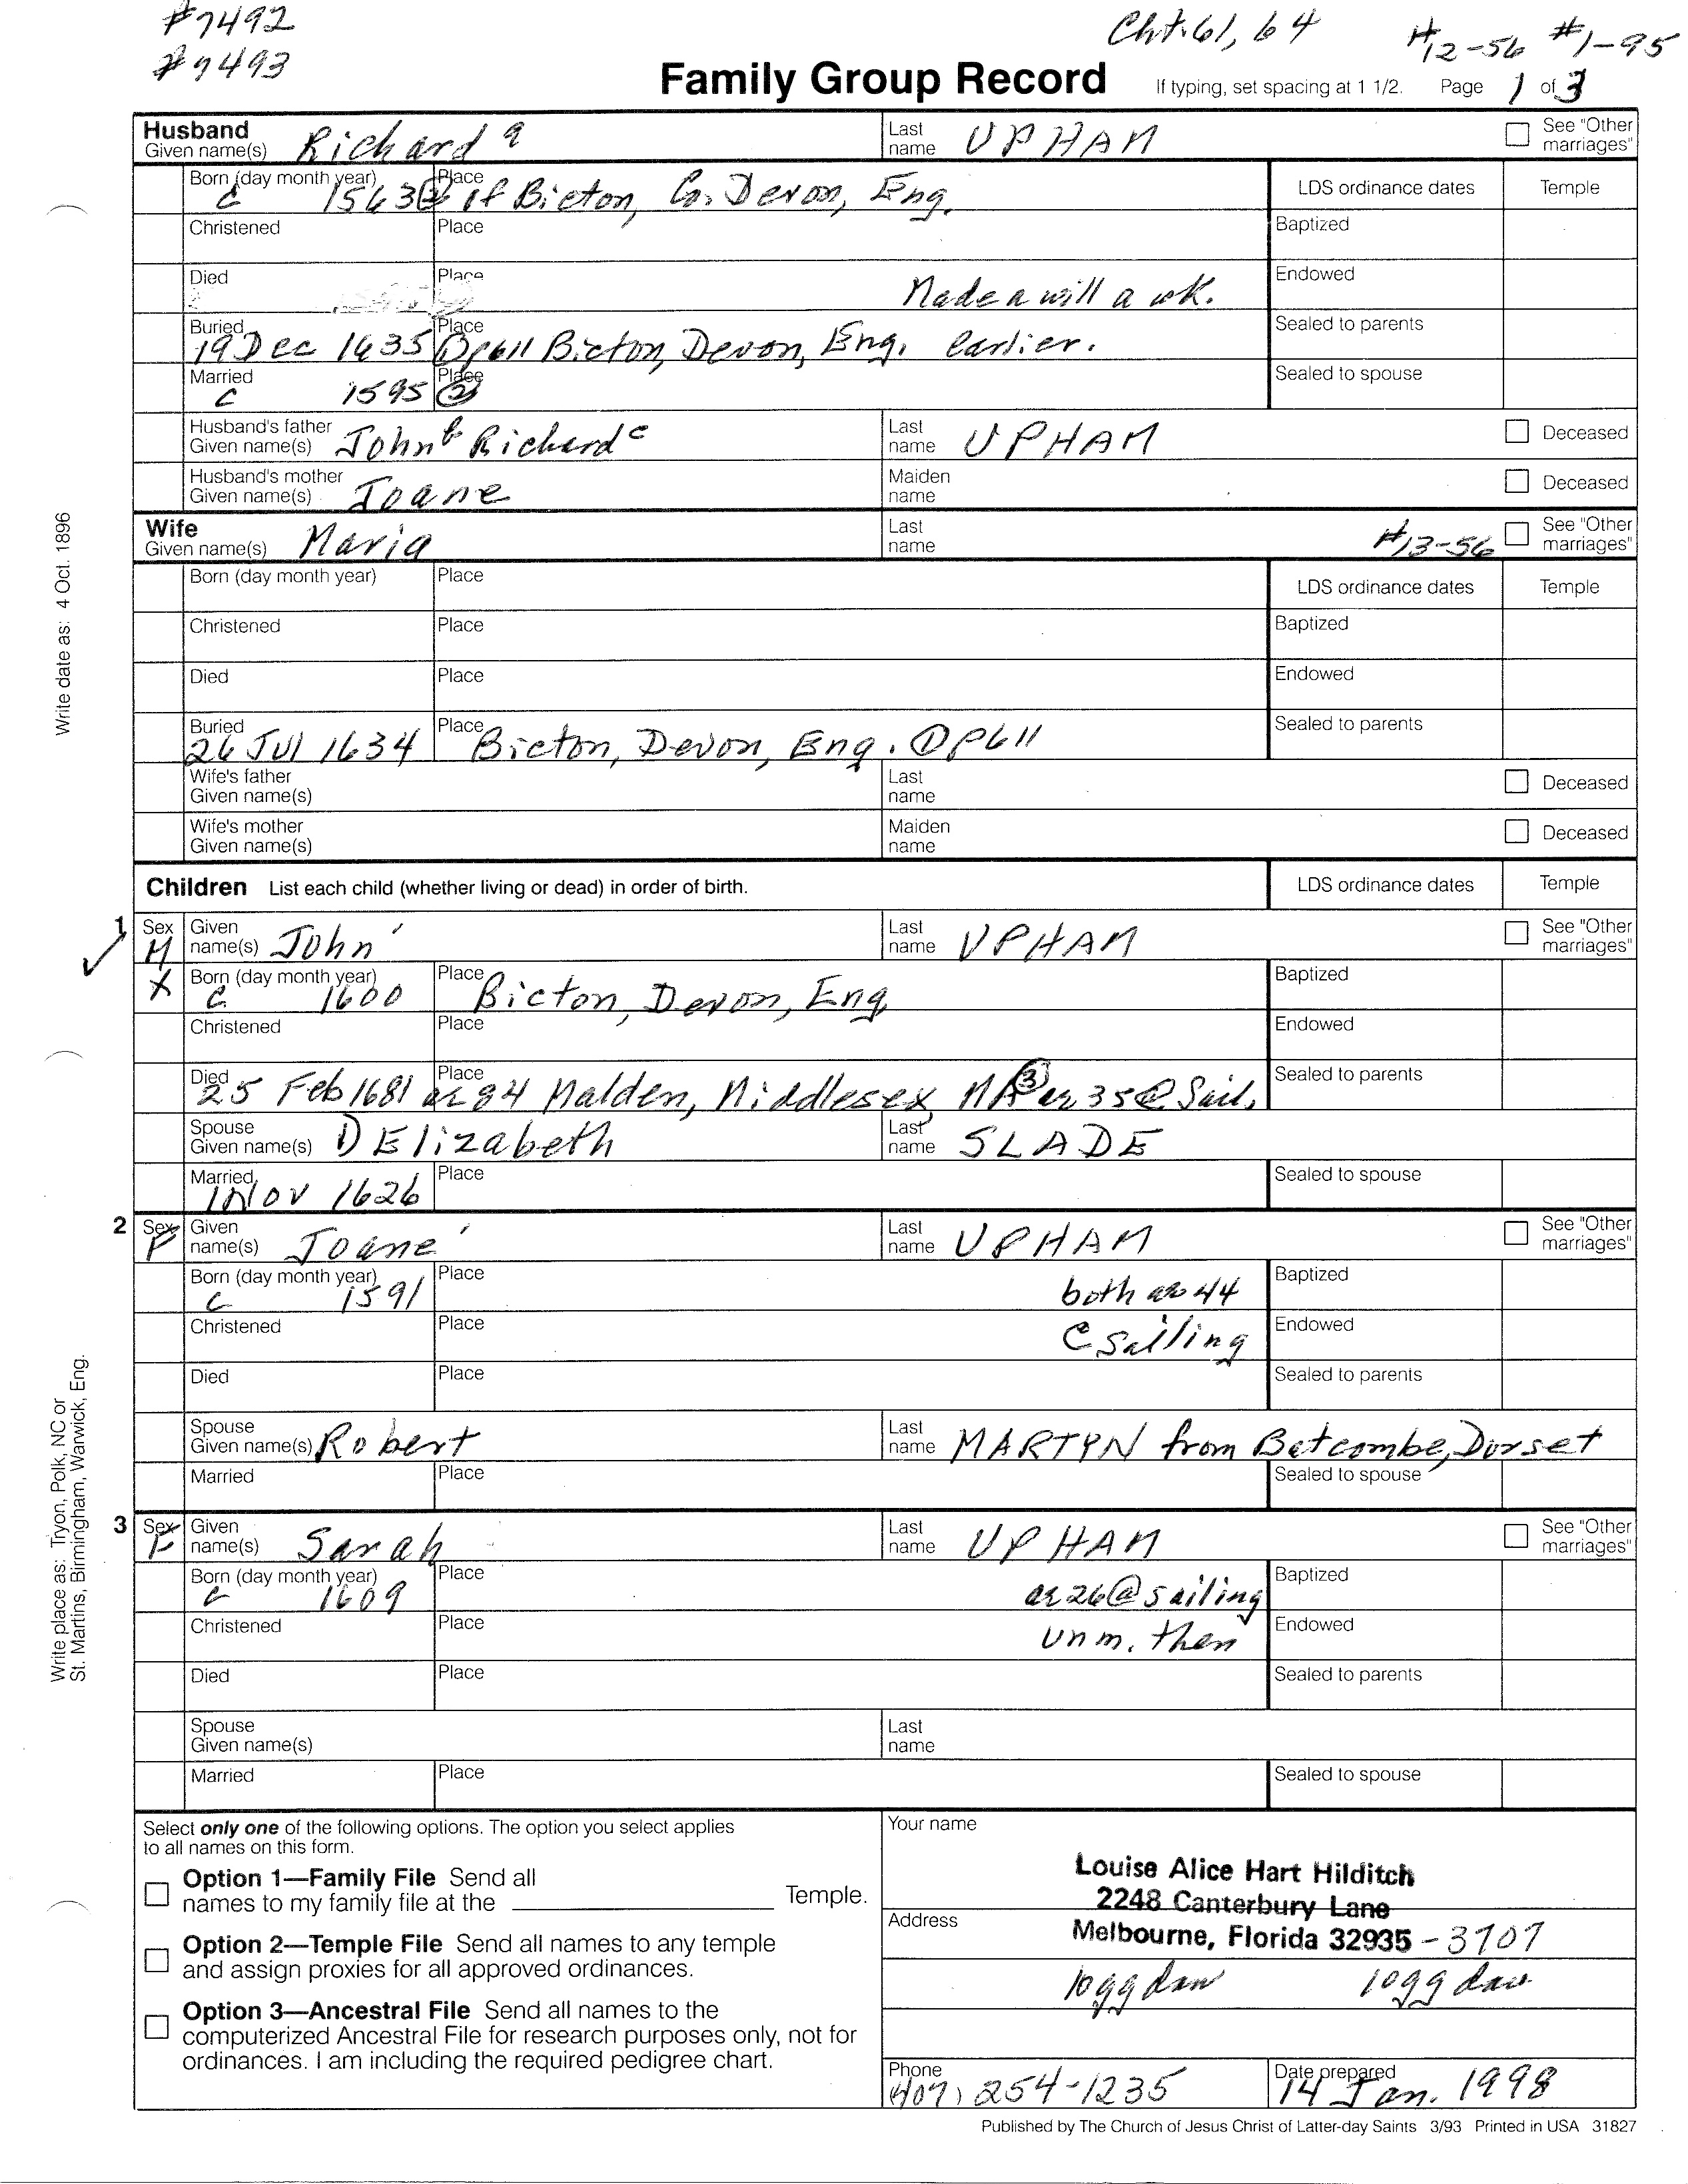 #7492
#7493
Cht. 61, 64
#12-56 #1-95
Family Group Record If typing, set spacing at 1 1/2. Page 1 of 3
Husband
Given name(s) Richard 9
Last name UPHAM
See "Other marriages"
Born (day month year) Place
C 1563 of Bicton, Co. Devon, Eng.
LDS ordinance dates Temple
Christened Place Baptized
Died Place Made a will a wk. Endowed
Buried Place Sealed to parents
19 Dec 1635 ① p611 Bicton, Devon, Eng. earlier.
Married Place Sealed to spouse
C 1595 ②
Husband's father
Given name(s) John b Richard c
Last name UPHAM
Deceased
Husband's mother
Given name(s) Joane
Maiden name
Deceased
Wife
Given name(s) Maria
Last name
#13-56 See "Other marriages"
Born (day month year) Place LDS ordinance dates Temple
Christened Place Baptized
Died Place Endowed
Buried Place Sealed to parents
26 Jul 1634 Bicton, Devon, Eng. ① p611
Wife's father
Given name(s)
Last name
Deceased
Wife's mother
Given name(s)
Maiden name
Deceased
Children List each child (whether living or dead) in order of birth. LDS ordinance dates Temple
1 Sex M Given name(s) John
Last name UPHAM
See "Other marriages"
X Born (day month year) Place Baptized
C 1600 Bicton, Devon, Eng
Christened Place Endowed
Died Place Sealed to parents
25 Feb 1681 ae 84 Malden, Middlesex MA ③ ae 35 @ Sail.
Spouse
Given name(s) 1) Elizabeth
Last name SLADE
Married Place Sealed to spouse
1 Nov 1626
2 Sex F Given name(s) Joane
Last name UPHAM
See "Other marriages"
Born (day month year) Place Baptized
C 1591 both ae 44
Christened Place @ sailing Endowed
Died Place Sealed to parents
Spouse
Given name(s) Robert
Last name MARTYN from Batcombe, Dorset
Married Place Sealed to spouse
3 Sex F Given name(s) Sarah
Last name UPHAM
See "Other marriages"
Born (day month year) Place Baptized
C 1609 ae 26 @ sailing
Christened Place unm. then Endowed
Died Place Sealed to parents
Spouse
Given name(s)
Last name
Married Place Sealed to spouse
Select only one of the following options. The option you select applies
to all names on this form.
Option 1—Family File Send all
names to my family file at the Temple.
Option 2—Temple File Send all names to any temple
and assign proxies for all approved ordinances.
Option 3—Ancestral File Send all names to the
computerized Ancestral File for research purposes only, not for
ordinances. I am including the required pedigree chart.
Your name
Louise Alice Hart Hilditch
2248 Canterbury Lane
Address
Melbourne, Florida 32935 - 3707
Phone
407) 254-1235
Date prepared
14 Jan. 1998
Published by The Church of Jesus Christ of Latter-day Saints 3/93 Printed in USA 31827
Write date as: 4 Oct. 1896
Write place as: Tryon, Polk, NC or
St. Martins, Birmingham, Warwick, Eng.